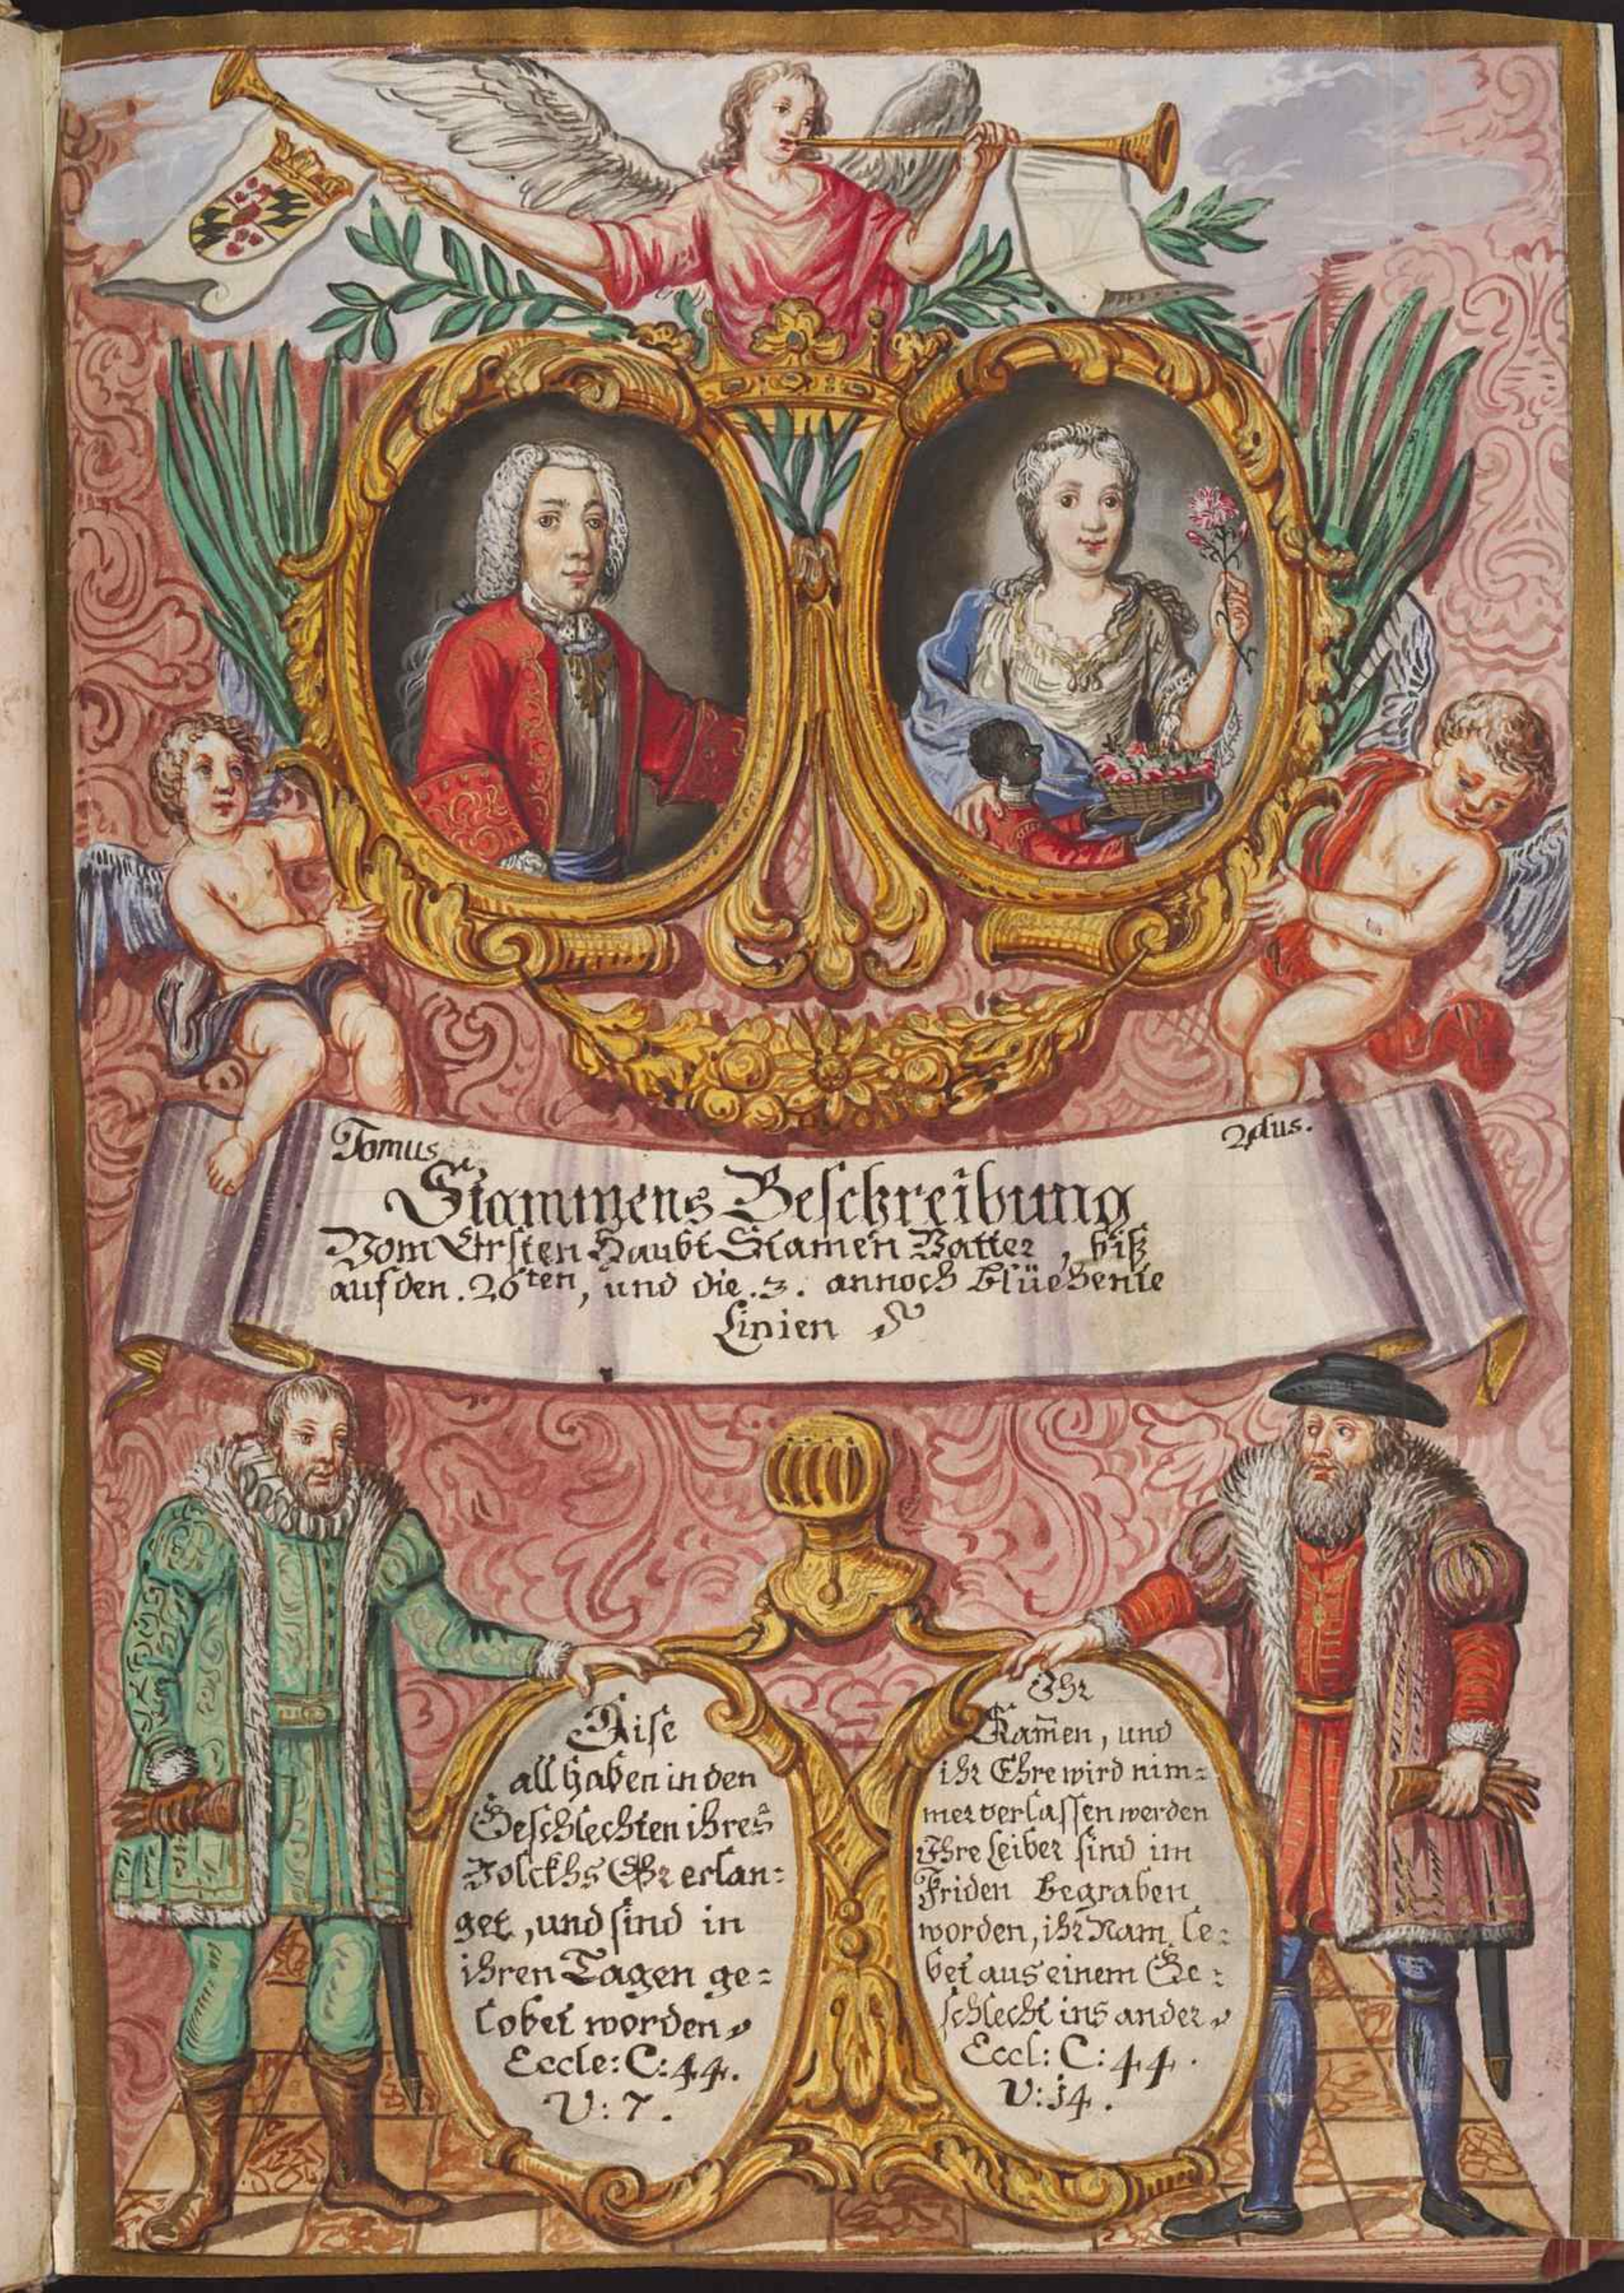 Tomus 2dus.
Stammens Beschreibung
Vom Ersten Haubt Stamen Vatter, biß
auf den .26ten, und die .3. annoch blüehente
Linien
Dise
all haben in den
Geschlechten ihres
Volckhs Ehr erlan=
get, und sind in
ihren Tagen ge=
lobet worden
Eccle: C: 44.
V: 7.
Ihr
Namen, und
ihr Ehre wird nim=
mer verlassen werden
Ihre Leiber sind im
Friden begraben
worden, ihr Nam le=
bet aus einem Ge=
schlecht ins ander
Eccl: C: 44.
V: 14.